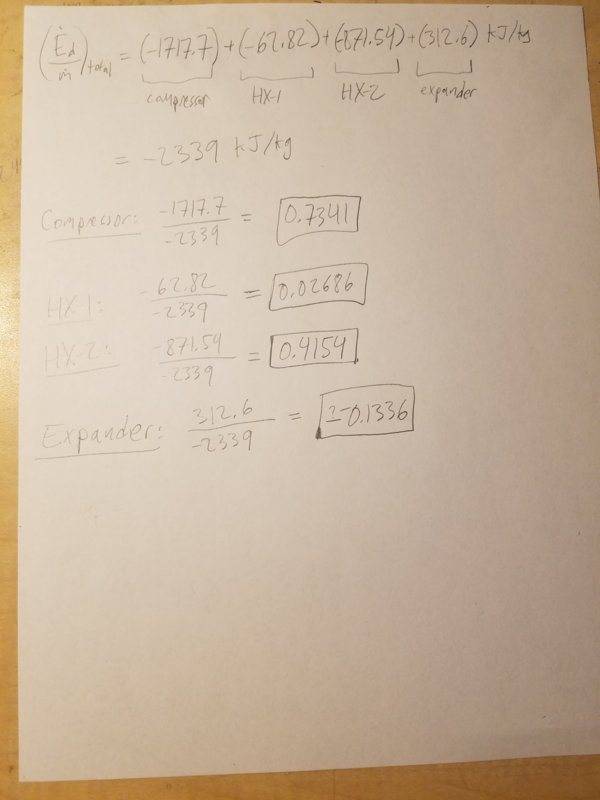 (Ėd/ṁ)total = (-1717.7)+(-62.82)+(-871.54)+(312.6) kJ/kg
compressor HX-1 HX-2 expander
= -2339 kJ/kg
Compressor: -1717.7/-2339 = 0.7341
HX-1: -62.82/-2339 = 0.02686
HX-2: -871.54/-2339 = 0.4154
Expander: 312.6/-2339 = -0.1336